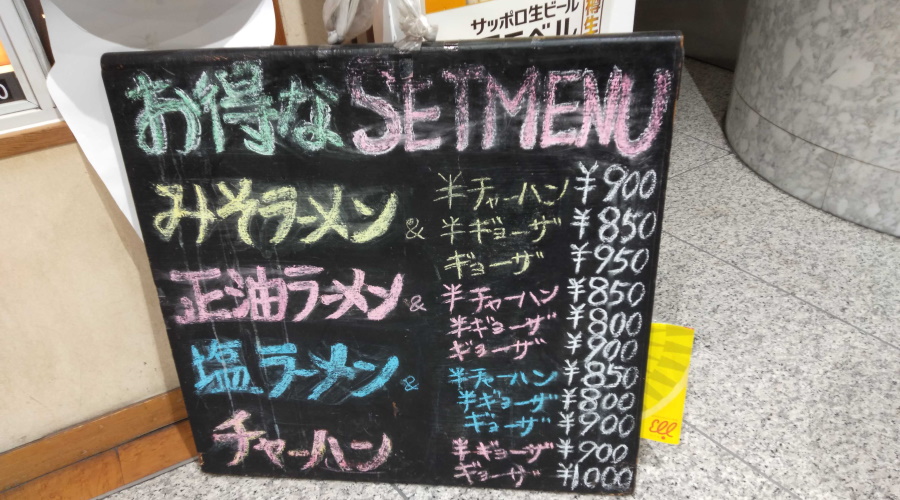 サッポロ生ビール
得生
お得なSETMENU
みそラーメン & 半チャーハン ¥900
半ギョーザ ¥850
ギョーザ ¥950
正油ラーメン & 半チャーハン ¥850
半ギョーザ ¥800
ギョーザ ¥900
塩ラーメン & 半チャーハン ¥850
半ギョーザ ¥800
ギョーザ ¥900
チャーハン 半ギョーザ ¥900
ギョーザ ¥1000